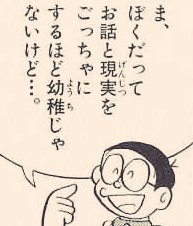 ま、
ぼくだって
お話と現実を
げんじつ
ごっちゃに
するほど幼稚じゃ
ようち
ないけど…。